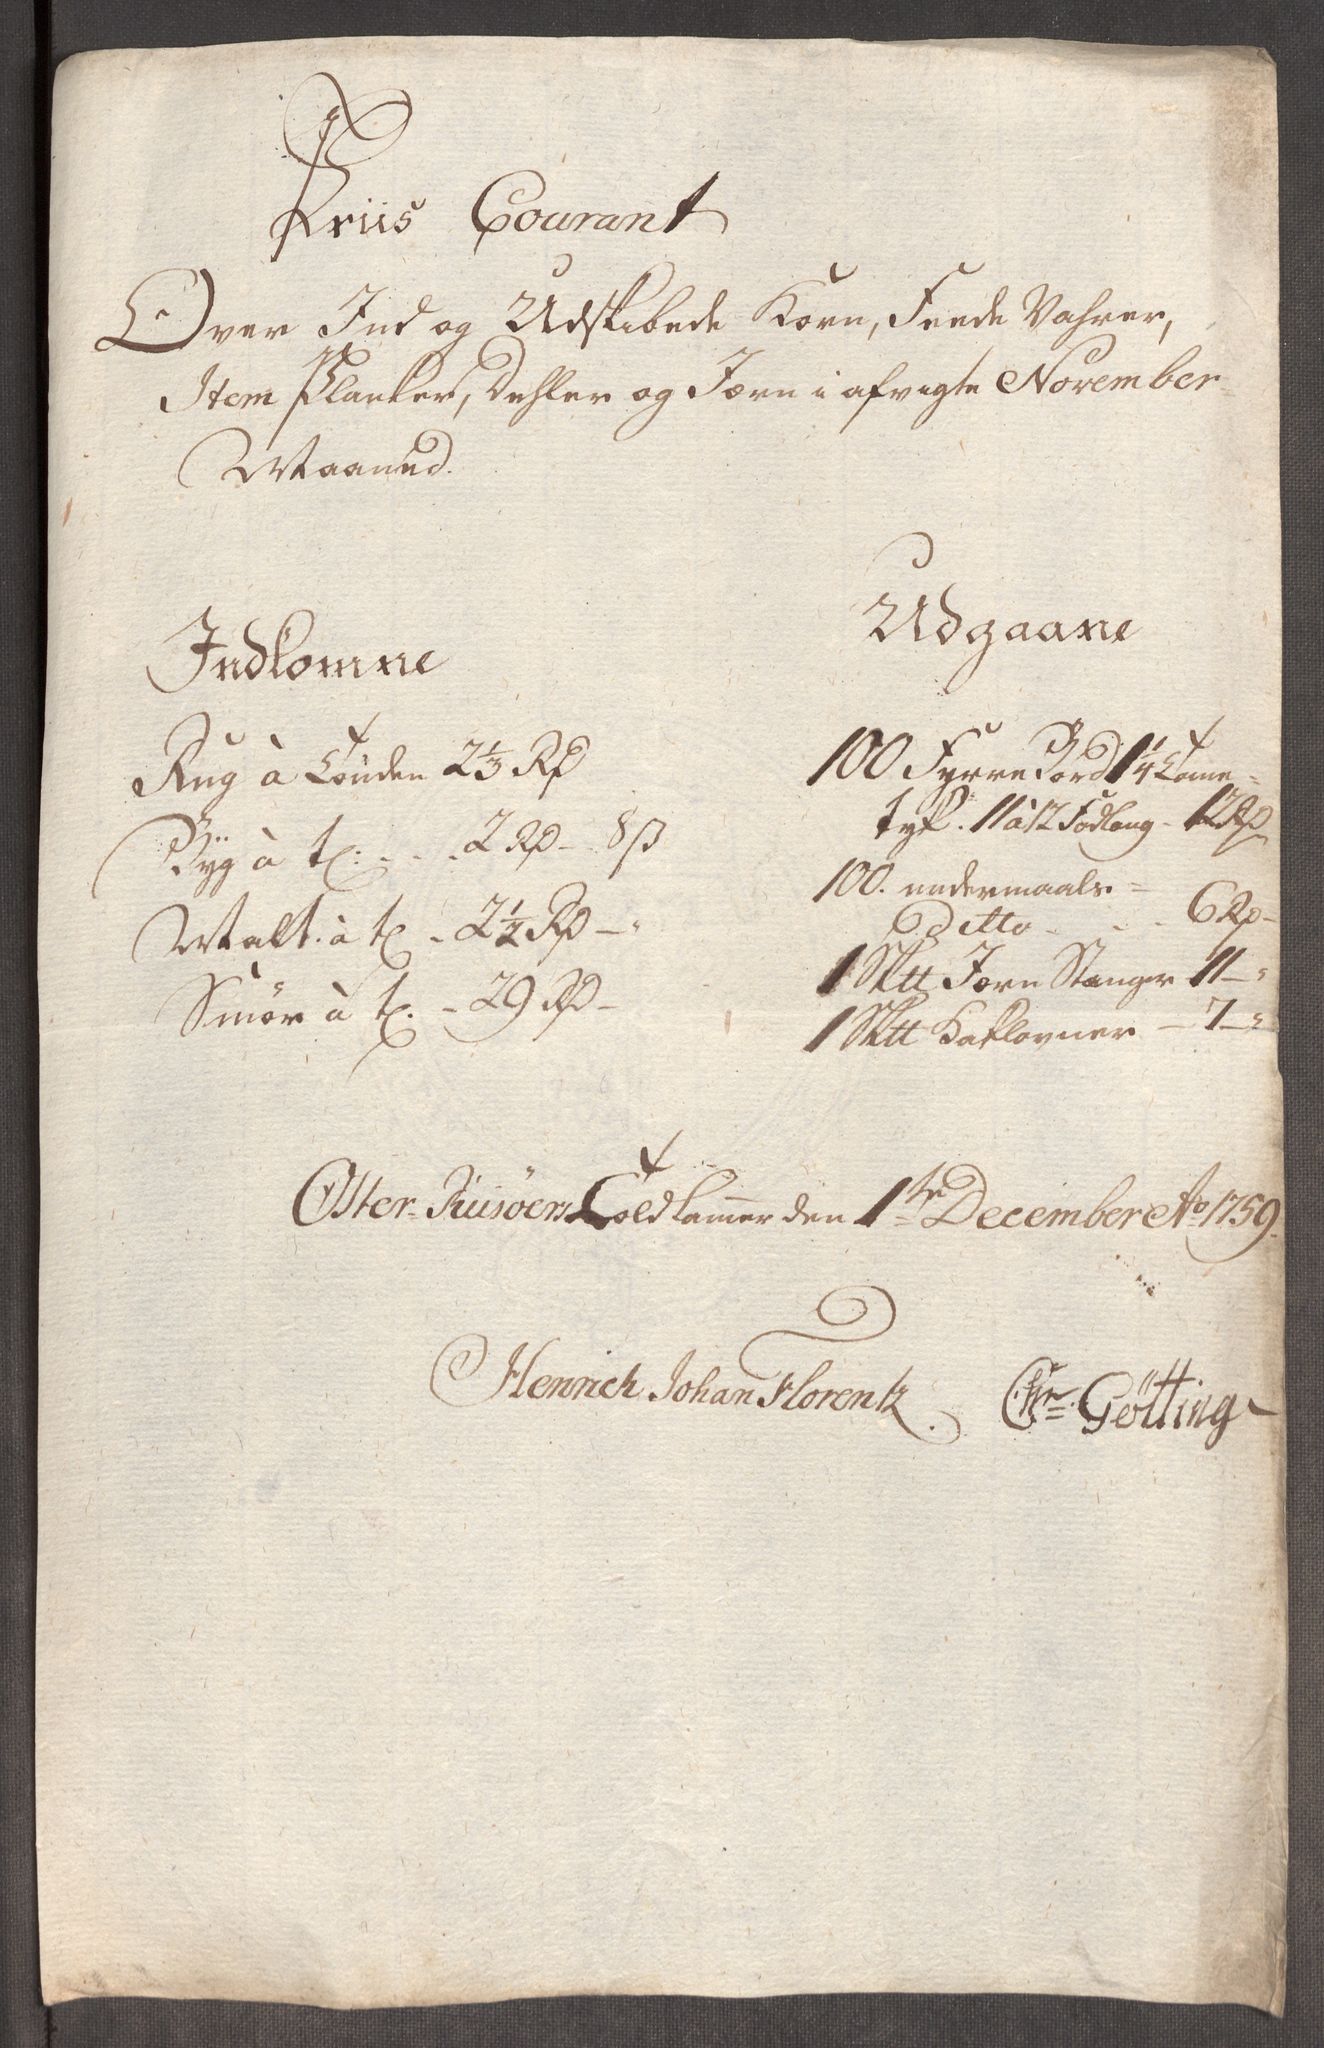 Priis Courant
Over Ind og Udskibede Korn, Feede Vahrer,
Item Planker, Dehler og Jern i afvigte November
Maaned.
Indkomne
Rug à Tönden 2 1/3 Rd
Byg à t. . . . 2 Rd - 8 ß
Malt. à t. - 2 1/2 Rd - "
Smör à t. - 29 Rd -
Udgaane
100 Fyrre Bord 1 1/4 Tomme
tyk. 11 à 12 Fod lang - 12 Rd
100. undermaals =
Ditto . . . 6 Rd -
1 Sktt Jern Stanger 11 - "
1 Sktt Kaklovner - 7 - "
Öster-Riisöers Told kammer den 1te December Ao 1759.
Henrich Johan Florentz. Chr. Götting